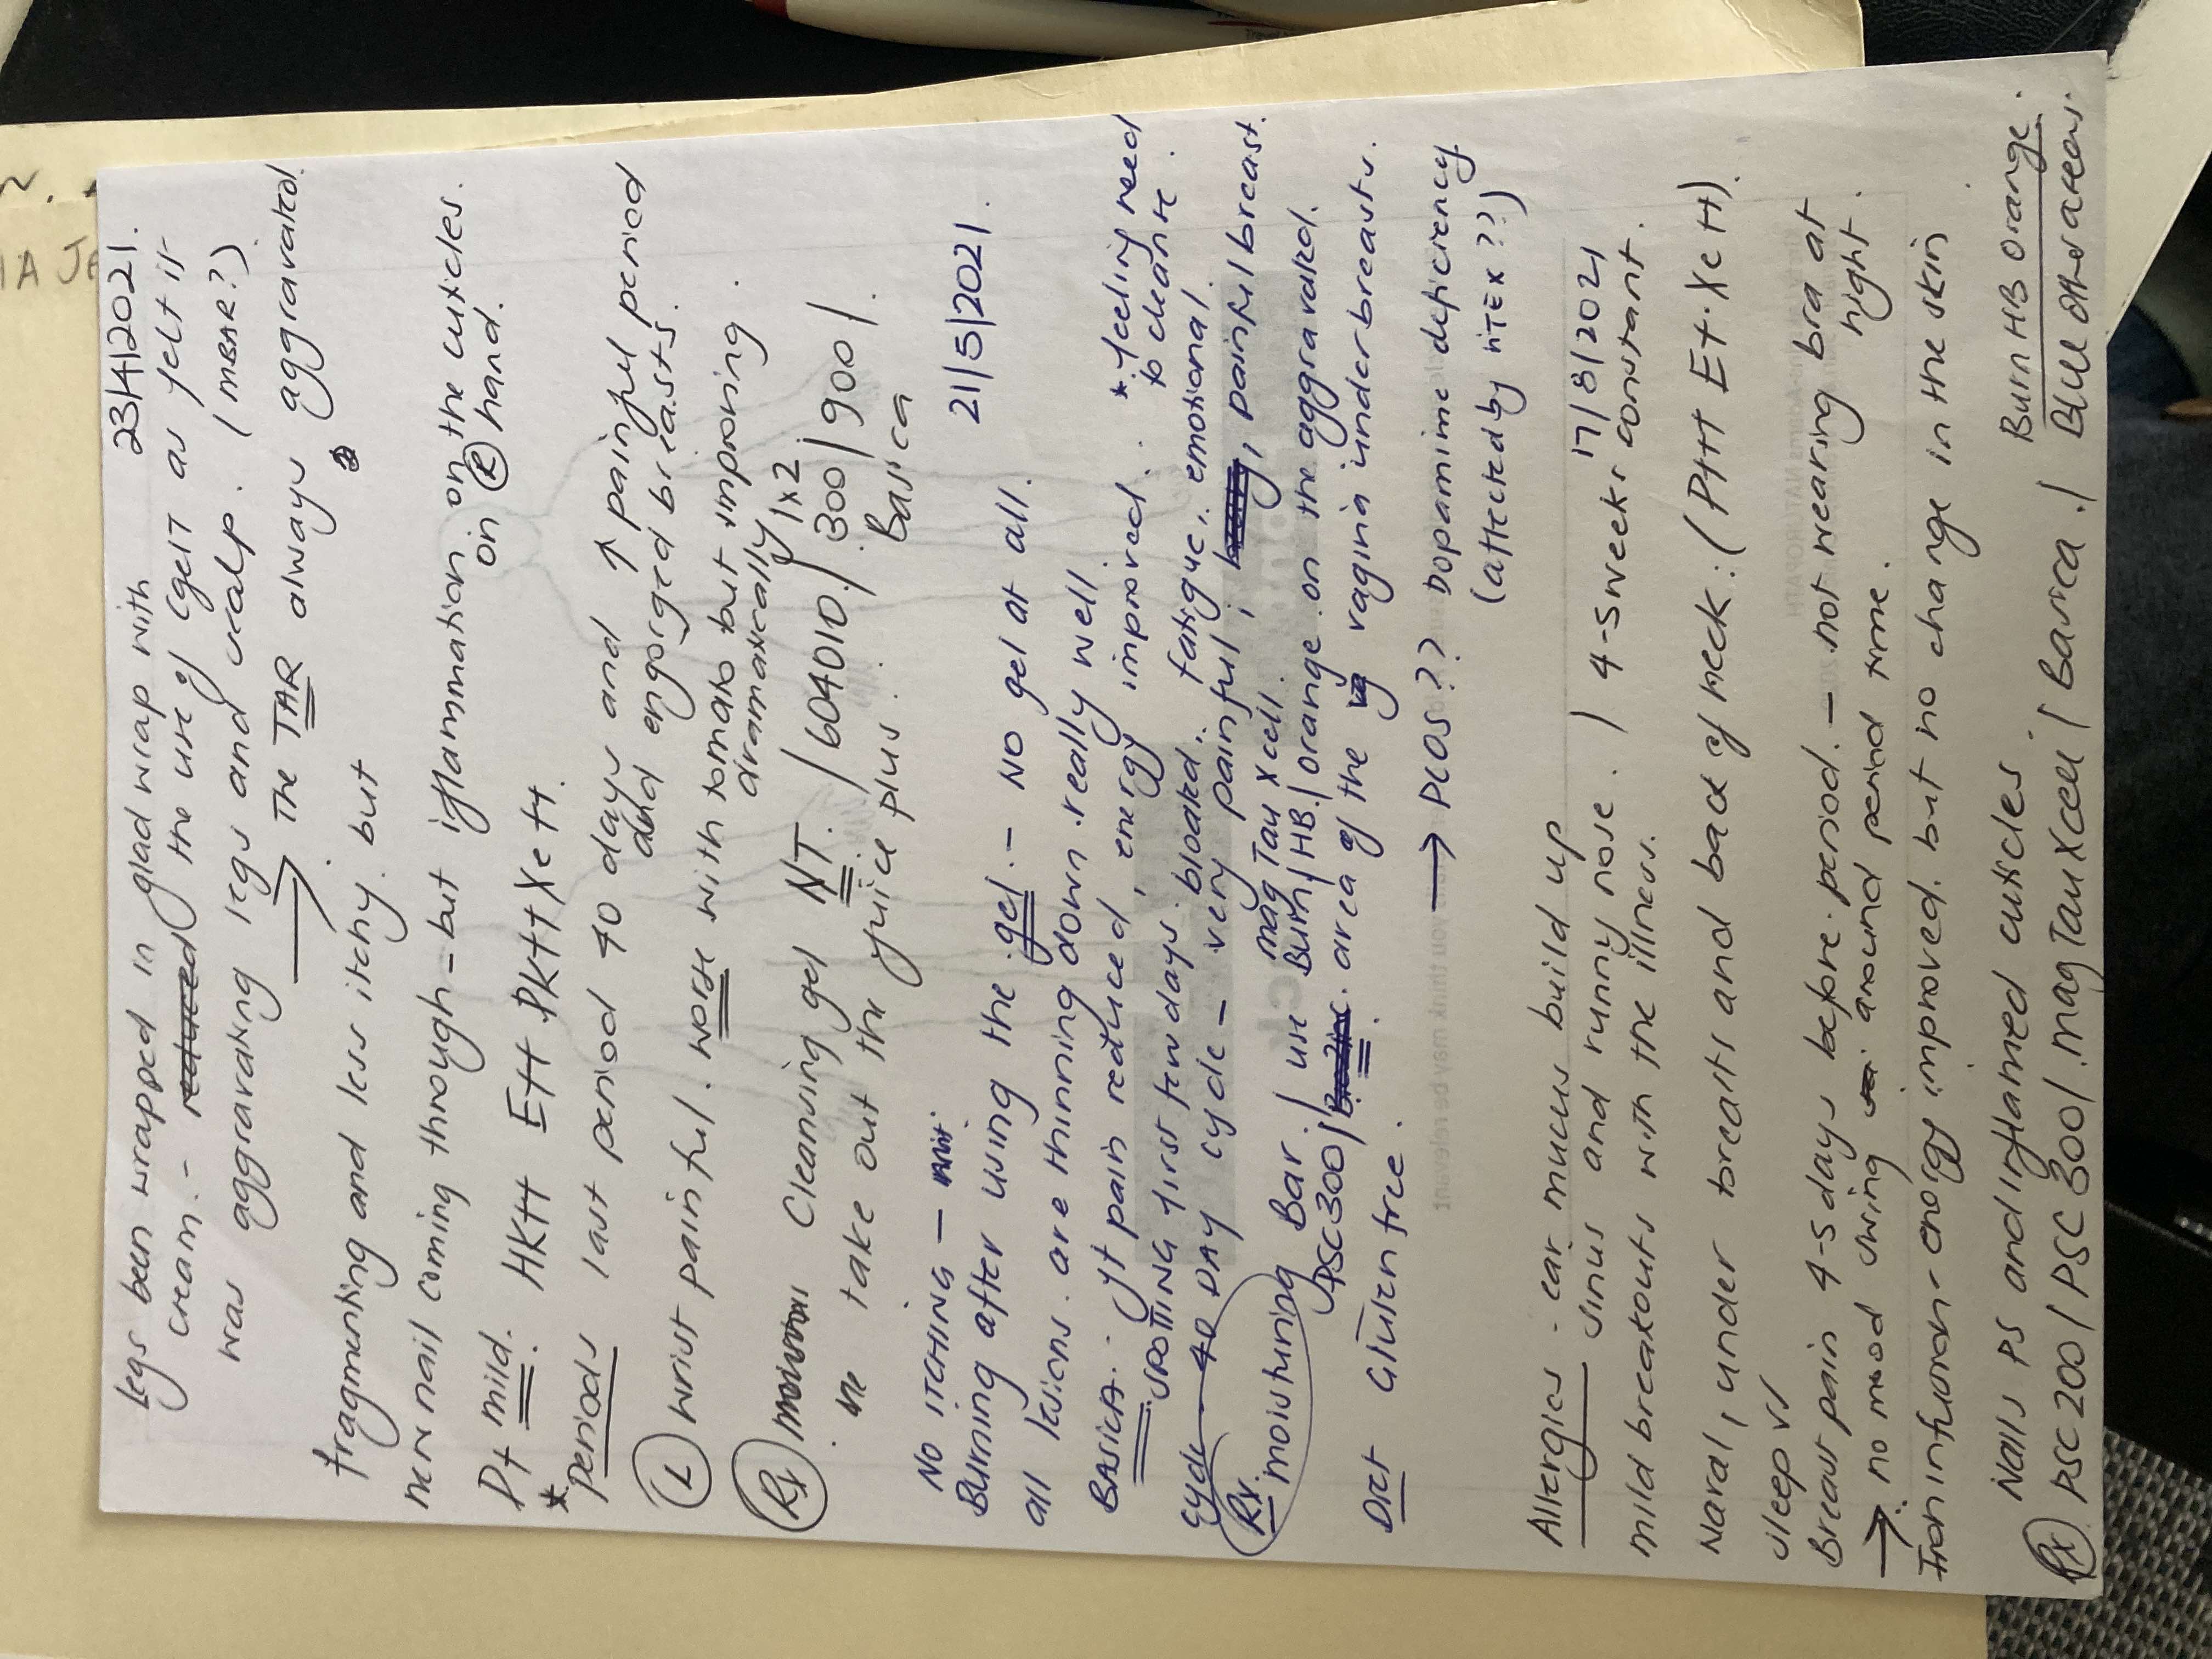 23/4/2021.
Legs been wrapped in glad wrap with
cream. - the use of (gel? as felt it
was aggravating legs and scalp. (MBAR?)
→ The TAR always aggravated.
fragmenting and less itchy. but
new nail coming through - but inflammation on the cuticles.
on (R) hand.
Pt mild. HK++ E++ PK++ Xe++.
* Periods last period 40 days and ↑ painful period
and engorged breasts.
(L) wrist painful. worse with tomato but improving
dramatically.
(Rx) Cleansing gel NT. / 604010. / 1x2 / 300 / 900 /.
take out the juice plus. Basica
21/5/2021.
NO ITCHING -
Burning after using the gel. - NO gel at all.
all lesions. are thinning down. really well.
BASICA. - jt pain reduced, energy improved. * feeling need
to cleanse.
SPOTTING first few days. bloated. fatigue. emotional.
cycle - 40 DAY cycle - very painful; painful breast.
mag Tau Xcell.
Rx. moisturing Bar. / use Burn / HB. / orange on the aggravated.
PSC 300 / area of the vagina under breasts.
Diet Gluten free. → PCOS?? Dopamine deficiency
(affected by VITEX??)
17/8/2021
Allergies - ear mucus build up
sinus and runny nose. / 4-5 weeks constant.
mild breakouts with the illness.
Naval, under breasts and back of neck: (P++ E+ Xe++).
sleep
Breast pain 4-5 days before. period. - not wearing bra at
night.
→ no mood swing around period time.
Iron infusion - energy improved. but no change in the skin
Nails PS and inflamed cuticles. Burn HB Orange.
(Rx) PSC 200 / PSC 300 /. mag Tau Xcell / Basica. / Blue other areas.
IA JA